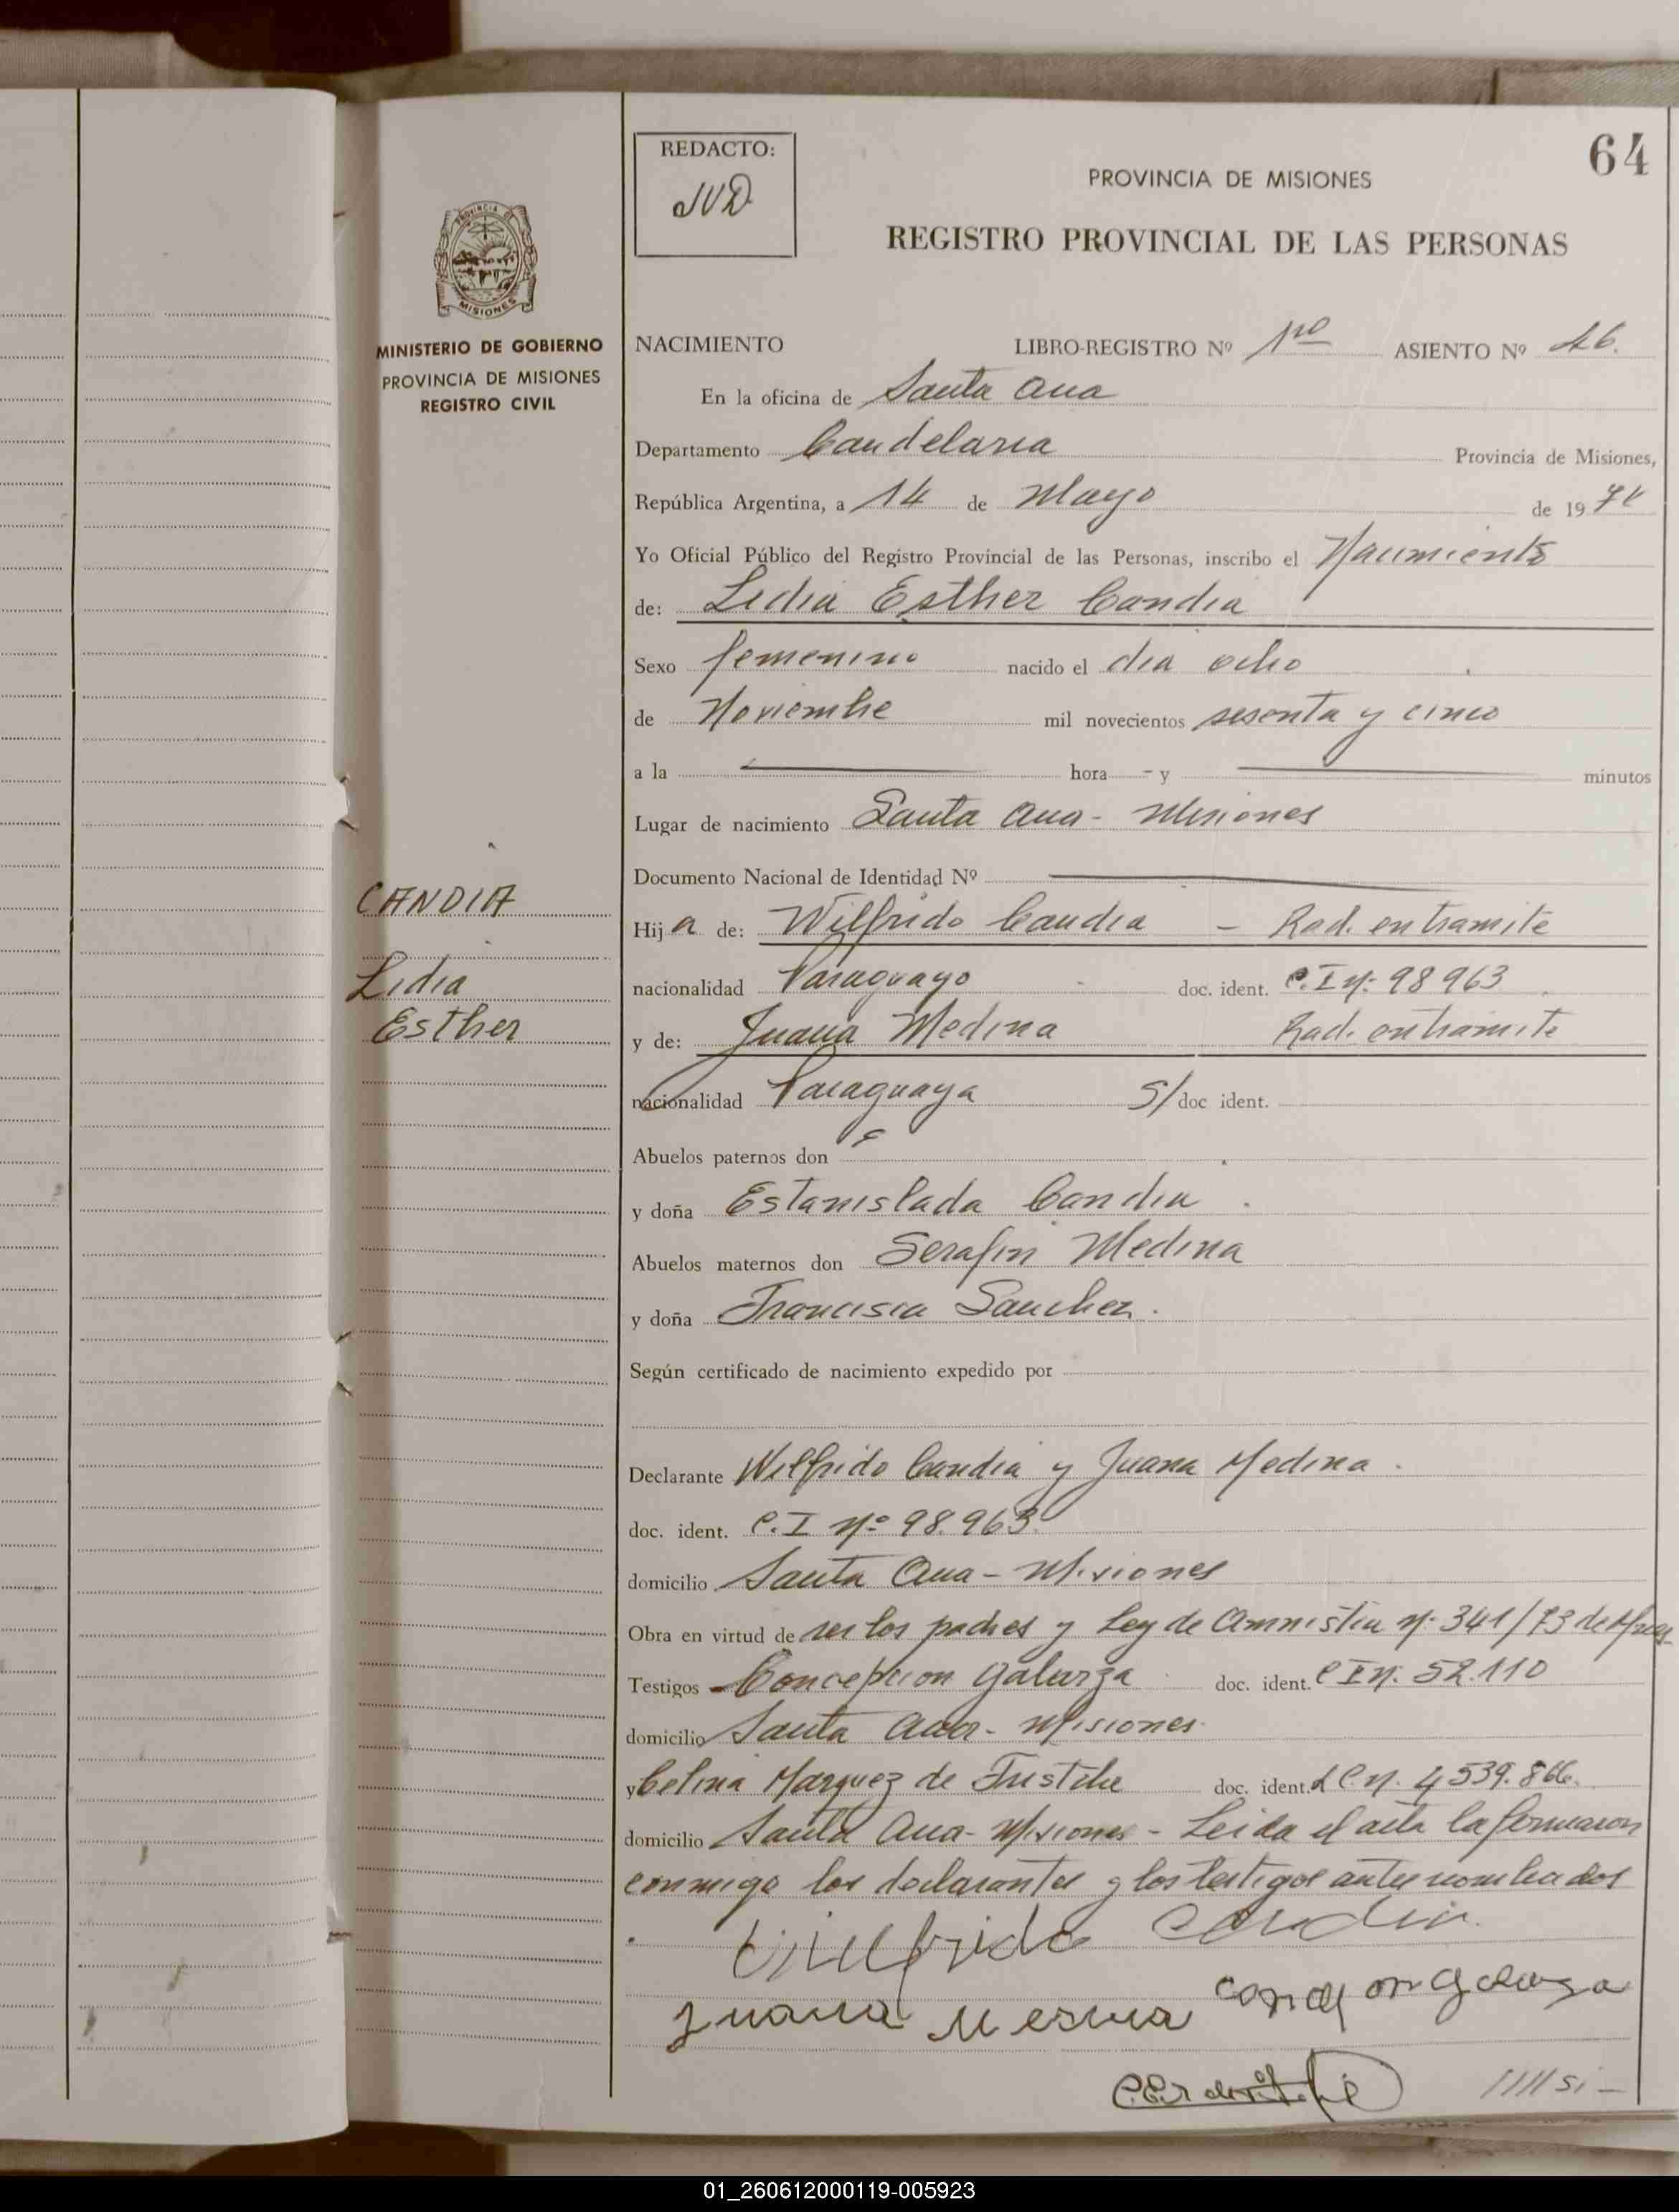 64
REDACTO:
JVD
PROVINCIA DE MISIONES
REGISTRO PROVINCIAL DE LAS PERSONAS
PROVINCIA DE
MISIONES
MINISTERIO DE GOBIERNO
PROVINCIA DE MISIONES
REGISTRO CIVIL
NACIMIENTO LIBRO-REGISTRO Nº 1ro ASIENTO Nº 46.
En la oficina de Santa Ana
Departamento Candelaria Provincia de Misiones,
República Argentina, a 14 de Mayo de 19
Yo Oficial Público del Registro Provincial de las Personas, inscribo el Nacimiento
de: Lidia Esther Candia
Sexo femenino nacido el dia ocho
de Noviembre mil novecientos sesenta y cinco
a la hora - y minutos
Lugar de nacimiento Santa Ana - Misiones
Documento Nacional de Identidad Nº
CANDIA
Lidia
Esther
Hija de: Wilfrido Candia - Rad. en tramite
nacionalidad Paraguayo doc. ident. C.I Nº 98963
y de: Juana Medina Rad. en tramite
nacionalidad Paraguaya S/ doc ident.
Abuelos paternos don
y doña Estanislada Candia
Abuelos maternos don Serafin Medina
y doña Francisca Sanchez.
Según certificado de nacimiento expedido por
Declarante Wilfrido Candia y Juana Medina.
doc. ident. C.I Nº 98.963.
domicilio Santa Ana - Misiones
Obra en virtud de ser los padres y Ley de Amnistia Nº 341/73 de
Testigos Concepcion Galarza doc. ident. C I Nº 52.110
domicilio Santa Ana - Misiones.
y Celina Marquez de doc. ident. L C. Nº 4539.866.
domicilio Santa Ana - Misiones - Leida el acta la firmaron
conmigo los declarantes y los testigos antes nombrados
Wilfrido Candia.
Juana Medina
//// si -
01_260612000119-005923